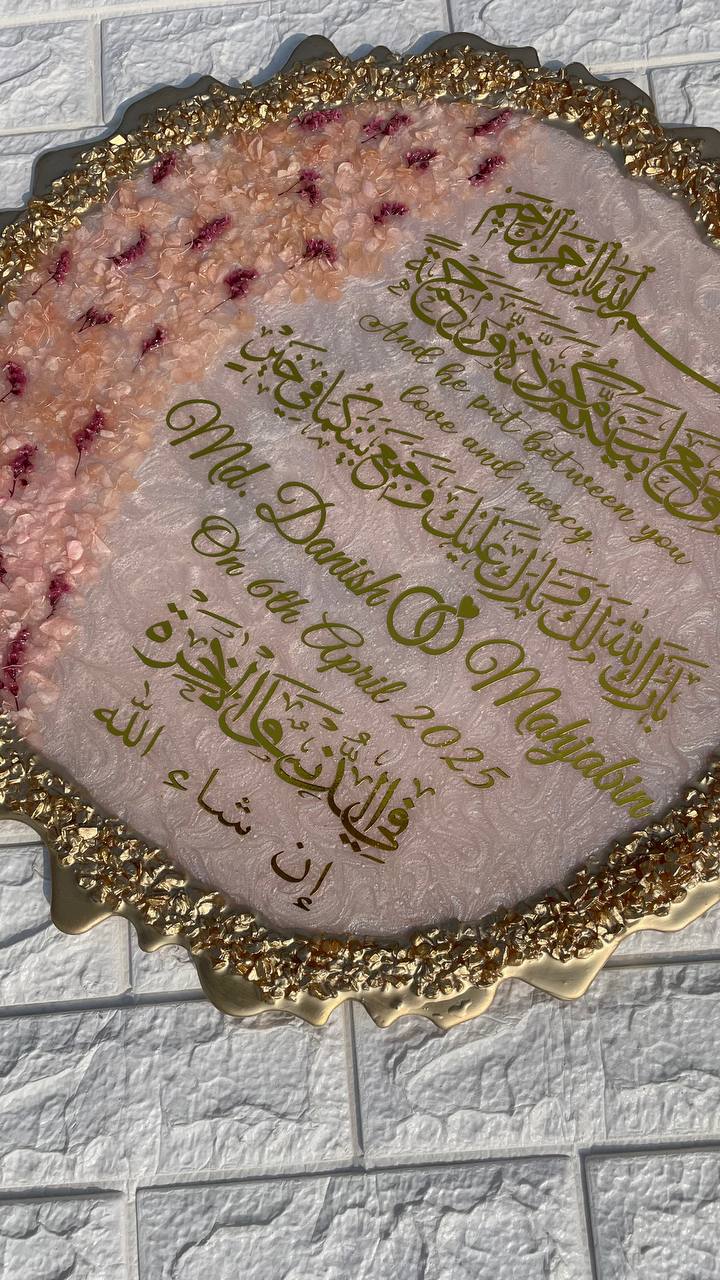 بسم الله الرحمن الرحيم
وجعل بينكم مودة ورحمة
And he put between you
love and mercy.
بارك الله لك وبارك عليك وجمع بينكما في خير
Md. Danish Mahjabin
On 6th April 2025
في الدنيا والآخرة
إن شاء الله